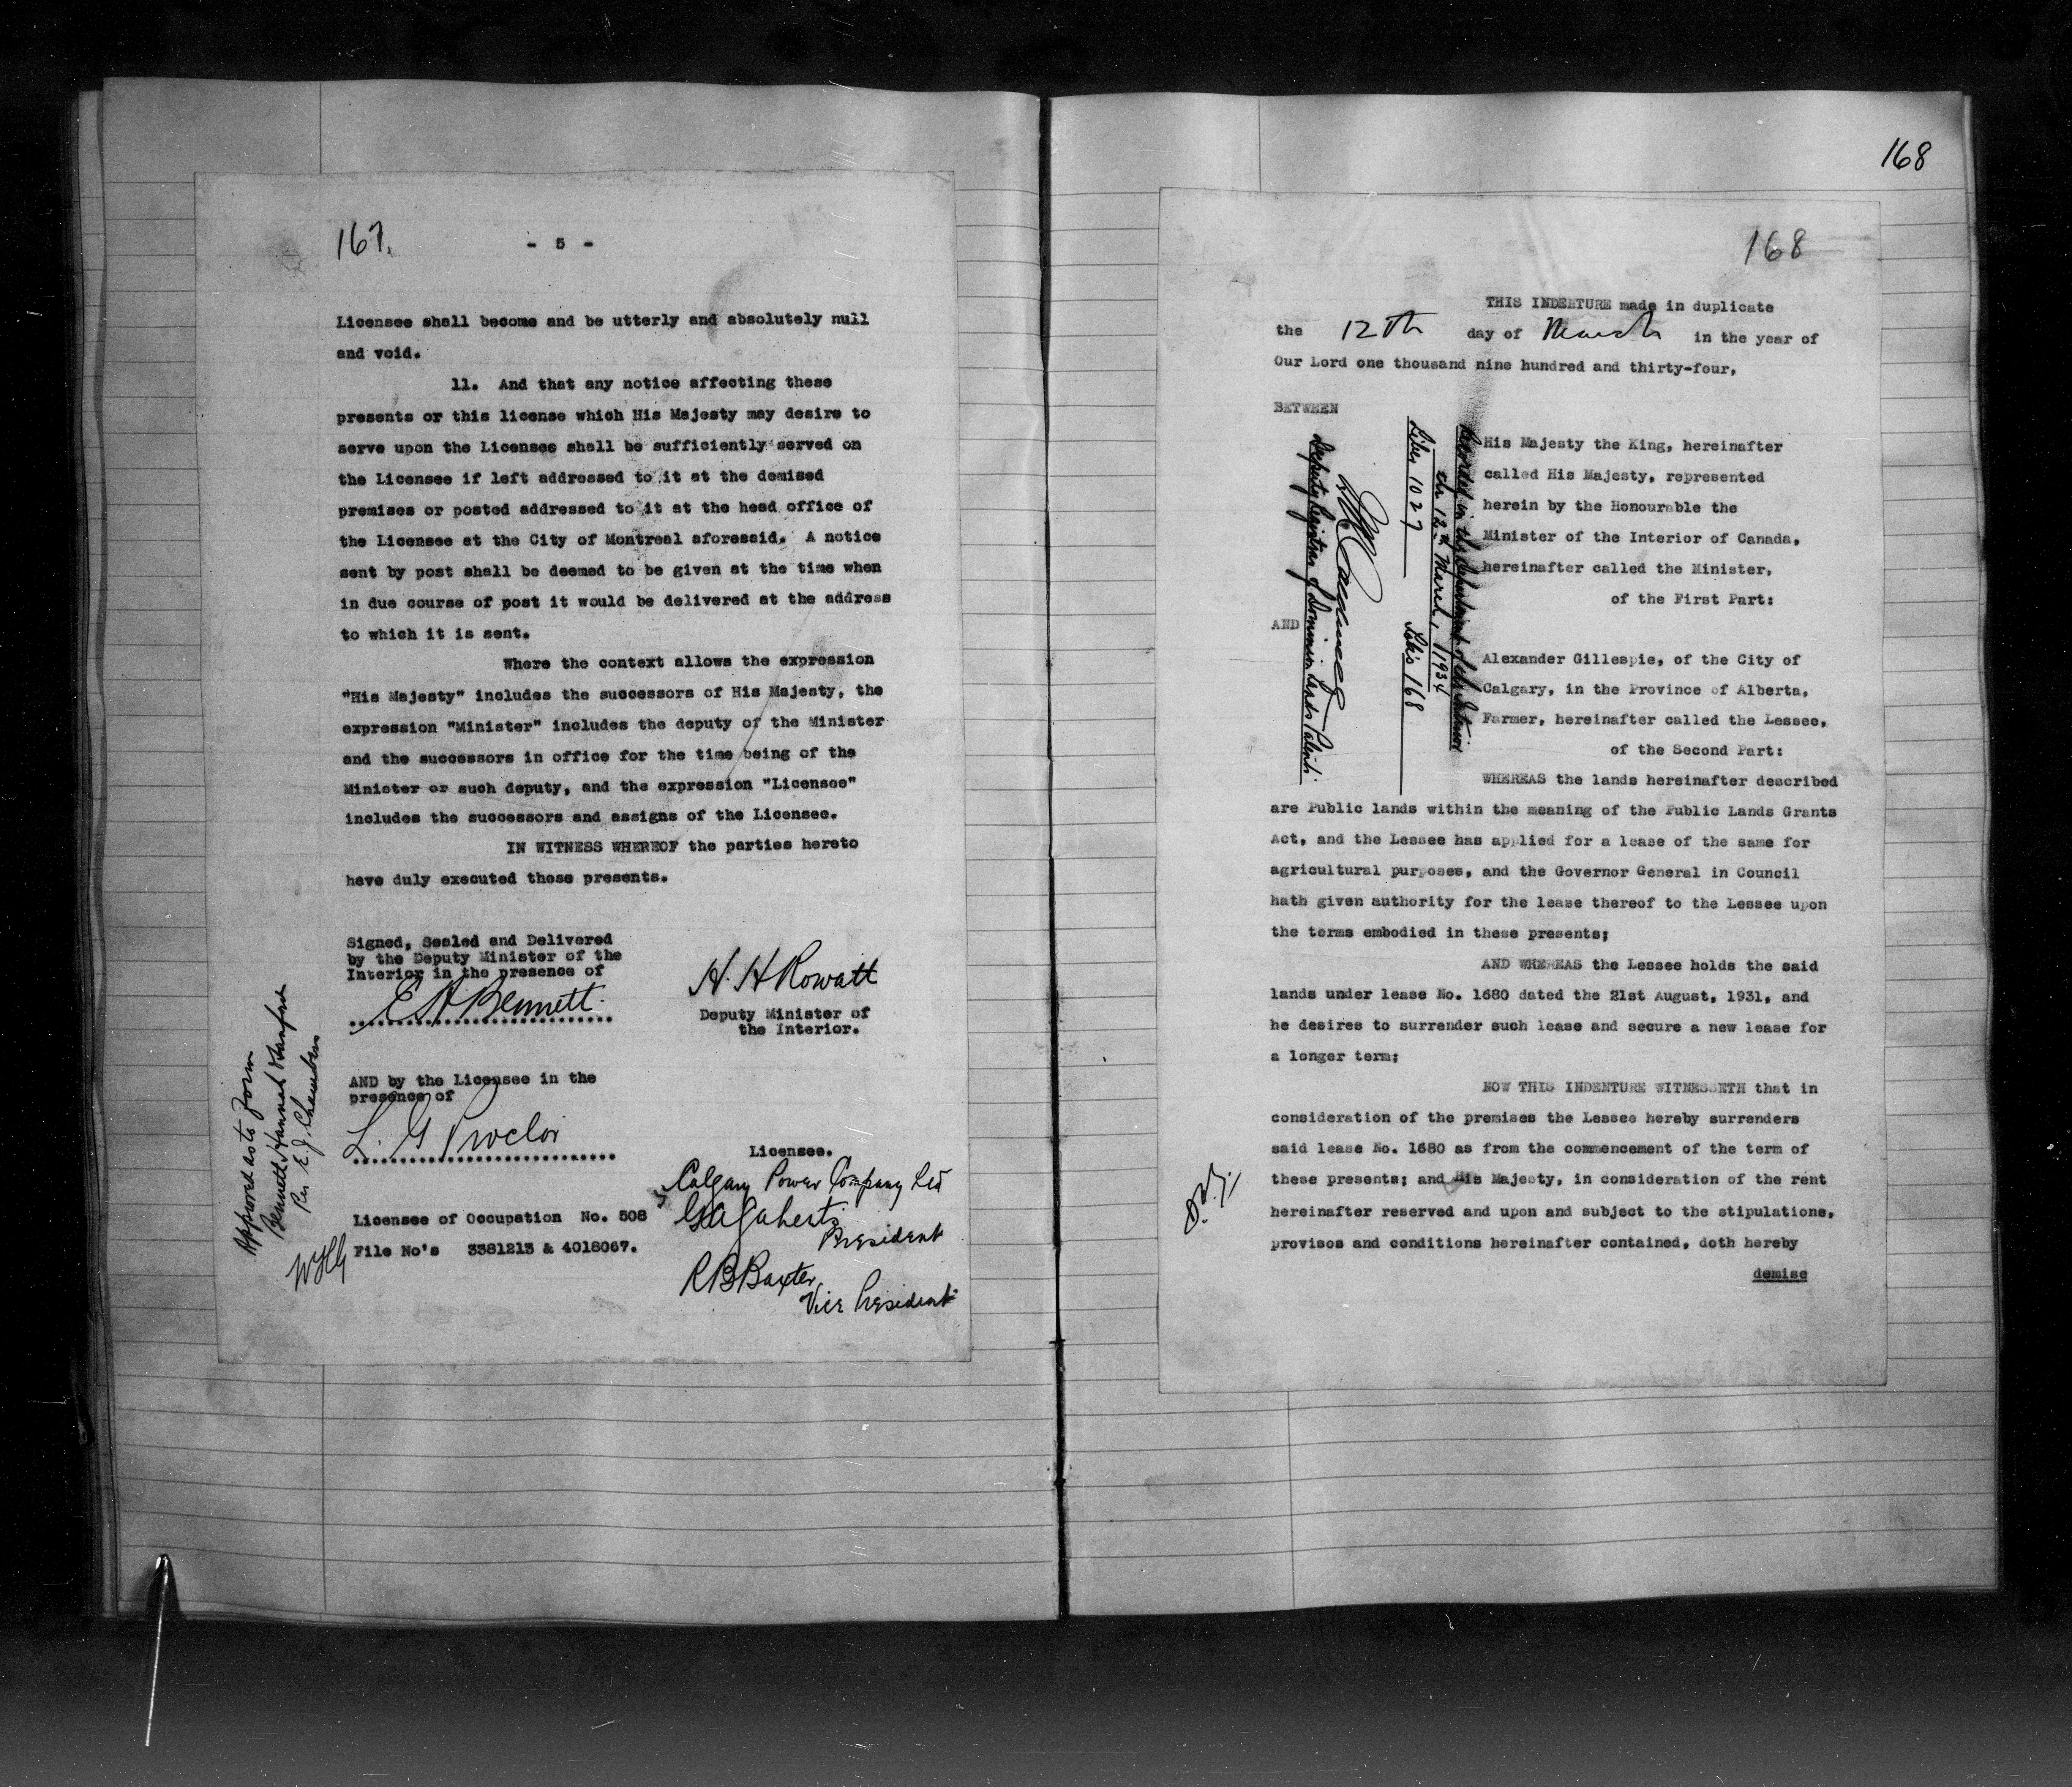 167.
- 5 -
Licensee shall become and be utterly and absolutely null
and void.
11. And that any notice affecting these
presents or this license which His Majesty may desire to
serve upon the Licensee shall be sufficiently served on
the Licensee if left addressed to it at the demised
premises or posted addressed to it at the head office of
the Licensee at the City of Montreal aforesaid. A notice
sent by post shall be deemed to be given at the time when
in due course of post it would be delivered at the address
to which it is sent.
Where the context allows the expression
"His Majesty" includes the successors of His Majesty, the
expression "Minister" includes the deputy of the Minister
and the successors in office for the time being of the
Minister or such deputy, and the expression "Licensee"
includes the successors and assigns of the Licensee.
IN WITNESS WHEREOF the parties hereto
have duly executed these presents.
Signed, Sealed and Delivered
by the Deputy Minister of the
Interior in the presence of
E A Bennett
H. H Rowatt
Deputy Minister of
the Interior.
AND by the Licensee in the
presence of
L. G Proctor
Licensee.
Calgary Power Company Ltd
G A Gaherty
President
R B Baxter
Vice President
Licensee of Occupation No. 508
File No's 3381213 & 4018067.
Approved as to form
Bennett Hannah & Sanford
Per E. J. Chambers
168
168
THIS INDENTURE made in duplicate
the 12th day of March in the year of
Our Lord one thousand nine hundred and thirty-four,
BETWEEN
His Majesty the King, hereinafter
called His Majesty, represented
herein by the Honourable the
Minister of the Interior of Canada,
hereinafter called the Minister,
of the First Part:
AND
Alexander Gillespie, of the City of
Calgary, in the Province of Alberta,
Farmer, hereinafter called the Lessee,
of the Second Part:
Recorded in the Department of the Interior
on 12th March, 1934
Liber 1027 Folio 168
Deputy Registrar of Dominion Lands Patents
WHEREAS the lands hereinafter described
are Public lands within the meaning of the Public Lands Grants
Act, and the Lessee has applied for a lease of the same for
agricultural purposes, and the Governor General in Council
hath given authority for the lease thereof to the Lessee upon
the terms embodied in these presents;
AND WHEREAS the Lessee holds the said
lands under lease No. 1680 dated the 21st August, 1931, and
he desires to surrender such lease and secure a new lease for
a longer term;
NOW THIS INDENTURE WITNESSETH that in
consideration of the premises the Lessee hereby surrenders
said lease No. 1680 as from the commencement of the term of
these presents; and His Majesty, in consideration of the rent
hereinafter reserved and upon and subject to the stipulations,
provisos and conditions hereinafter contained, doth hereby
demise